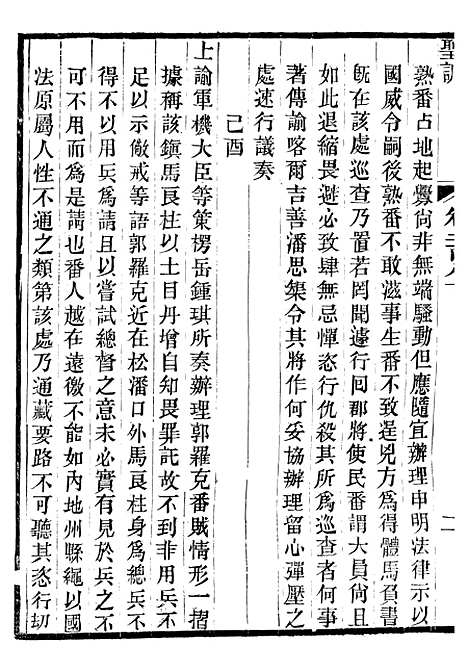 聖訓
熟番占地起釁尙非無端騷動但應隨宜辦理申明法律示以
國威令嗣後熟番不敢滋事生番不致逞兇方爲得體馬負書
旣在該處巡查乃置若罔聞遽行回郡將使民番謂大員尙且
如此退縮畏避必致肆無忌憚恣行仇殺其所爲巡查者何事
著傳諭喀爾吉善潘思榘令其將作何妥協辦理留心彈壓之
處速行議奏
己酉
上諭軍機大臣等策楞岳鍾琪所奏辦理郭羅克番賊情形一摺
據稱該鎮馬良柱以土目丹增自知畏罪託故不到非用兵不
足以示儆戒等語郭羅克近在松潘口外馬良柱身爲總兵不
得不以用兵爲請且以嘗試總督之意未必實有見於兵之不
可不用而爲是請也番人越在遠徼不能如內地州縣繩以國
法原屬人性不通之類第該處乃通藏要路不可聽其恣行劫